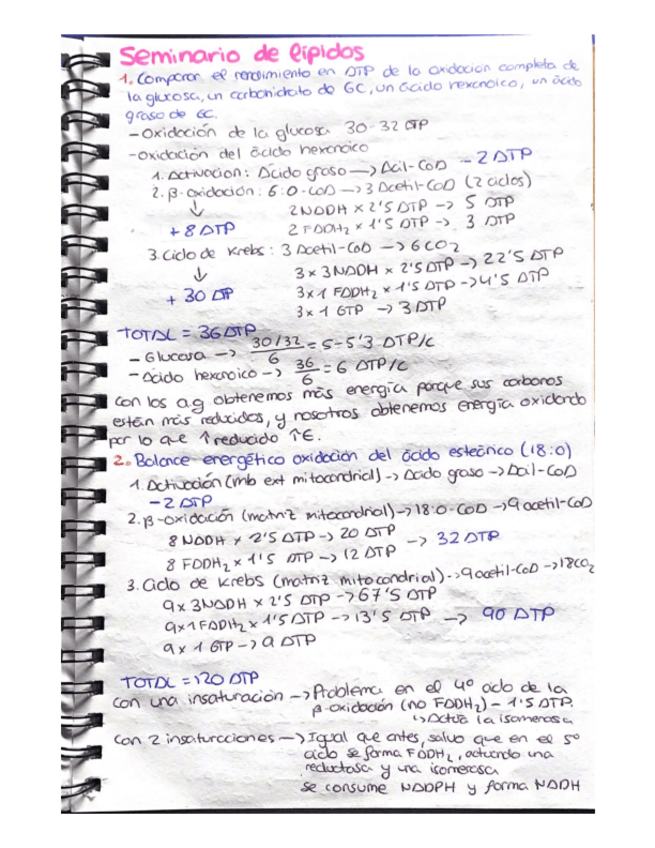 Seminario de lípidos
1. Comparar el rendimiento en ATP de la oxidación completa de
la glucosa, un carbohidrato de 6C, un ácido hexanoico, un ácido
graso de 6C.
- Oxidación de la glucosa 30-32 ATP
- Oxidación del ácido hexanoico
1. Activación: Ácido graso → Acil-CoA - 2 ATP
2. β-oxidación: 6:0-CoA → 3 Acetil-CoA (2 ciclos)
↓ 2 NADH x 2'5 ATP → 5 ATP
+ 8 ATP 2 FADH₂ x 1'5 ATP → 3 ATP
3. Ciclo de Krebs: 3 Acetil-CoA → 6 CO₂
↓ 3 x 3 NADH x 2'5 ATP → 22'5 ATP
+ 30 ATP 3 x 1 FADH₂ x 1'5 ATP → 4'5 ATP
3 x 1 GTP → 3 ATP
TOTAL = 36 ATP
- Glucosa → 30/32 / 6 = 5-5'3 ATP/C
- Ácido hexanoico → 36 / 6 = 6 ATP/C
con los a.g obtenemos más energía porque sus carbonos
están más reducidos, y nosotros obtenemos energía oxidando
por lo que ↑reducido ↑E.
2. Balance energético oxidación del ácido esteárico (18:0)
1. Activación (mb ext mitocondrial) → Ácido graso → Acil-CoA
- 2 ATP
2. β-oxidación (matriz mitocondrial) → 18:0-CoA → 9 acetil-CoA
8 NADH x 2'5 ATP → 20 ATP
8 FADH₂ x 1'5 ATP → 12 ATP → 32 ATP
3. Ciclo de Krebs (matriz mitocondrial) → 9 acetil-CoA → 18CO₂
9 x 3NADH x 2'5 ATP → 67'5 ATP
9 x 1 FADH₂ x 1'5 ATP → 13'5 ATP → 90 ATP
9 x 1 GTP → 9 ATP
TOTAL = 120 ATP
con una insaturación → Problema en el 4º ciclo de la
β-oxidación (no FADH₂) - 1'5 ATP.
↳ Actúa la isomerasa
con 2 insaturaciones → Igual que antes, salvo que en el 5º
ciclo se forma FADH₂, actuando una
reductasa y una isomerasa
se consume NADPH y forma NADH